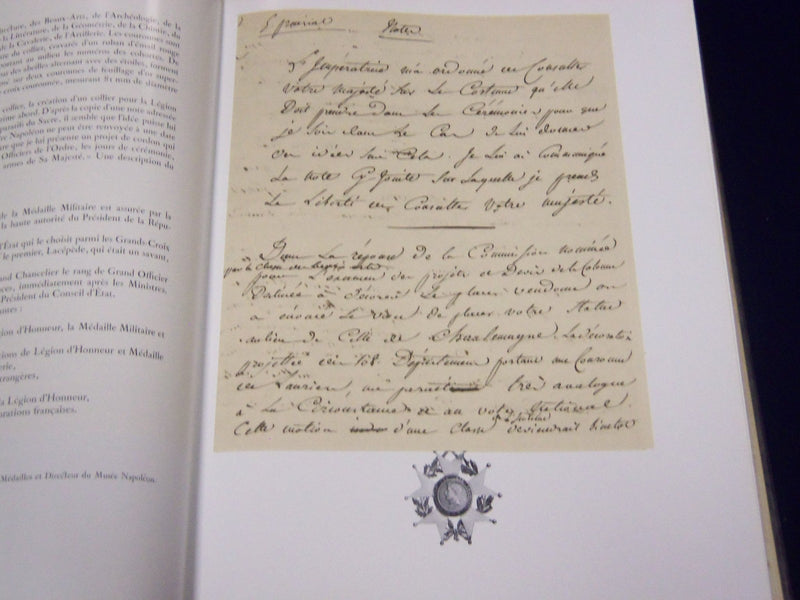 tecture, des Beaux-Arts, de l'Archéologie, de la
la Littérature, de la Géométrie, de la Chimie, du
la Cavalerie, de l'Artillerie. Les couronnes sont
du collier, cravatés d'un ruban d'émail rouge
portant au milieu les numéros des cohortes. De
des abeilles alternant avec des étoiles, forment
sur deux couronnes de feuillage d'or super-
croix couronnée, mesurant 81 mm de diamètre
collier, la création d'un collier pour la Légion
prime abord. D'après la copie d'une note adressée
du Sacre, il semble que l'idée première lui
Napoléon ne peut être renvoyée à une date
que je lui présente un projet de cordon qui
Officiers de l'Ordre, les jours de cérémonie,
armes de Sa Majesté. » Une description du
de la Médaille Militaire est assurée par la
la haute autorité du Président de la Répu-
d'État qui le choisit parmi les Grands-Croix
le premier, Lacépède, qui était un savant,
Grand Chancelier le rang de Grand Officier
immédiatement après les Ministres,
Président du Conseil d'État.
Légion d'Honneur, la Médaille Militaire et
de Légion d'Honneur et Médaille
étrangères,
la Légion d'Honneur,
décorations françaises.
Médailles et Directeur du Musée Napoléon.
prairial Notes
L'Impératrice m'a ordonné de Consulter
Votre majesté sur le Costume qu'elle
Doit prendre dans les Cérémonies pour que
je sois dans le Cas de lui donner
des idées sur Cela. Je lui ai Communiqué
La note Cy Jointe sur laquelle je prends
La Liberté de Consulter Votre majesté.
Dans la réponse de la Commission nommée
par la Classe des
pour L'examen des projets et Devis de la Colonne
Destinée à Décorer La place vendome on
a énoncé Le vœu de placer votre Statue
aulieu de Celle de Charlemagne. La décoration
projettée des 108 Département portans une Couronne
de Laurier, me très analogue
à la Circonstance et au votre
Cette motion d'une Classe de l'institut deviendrait bientot